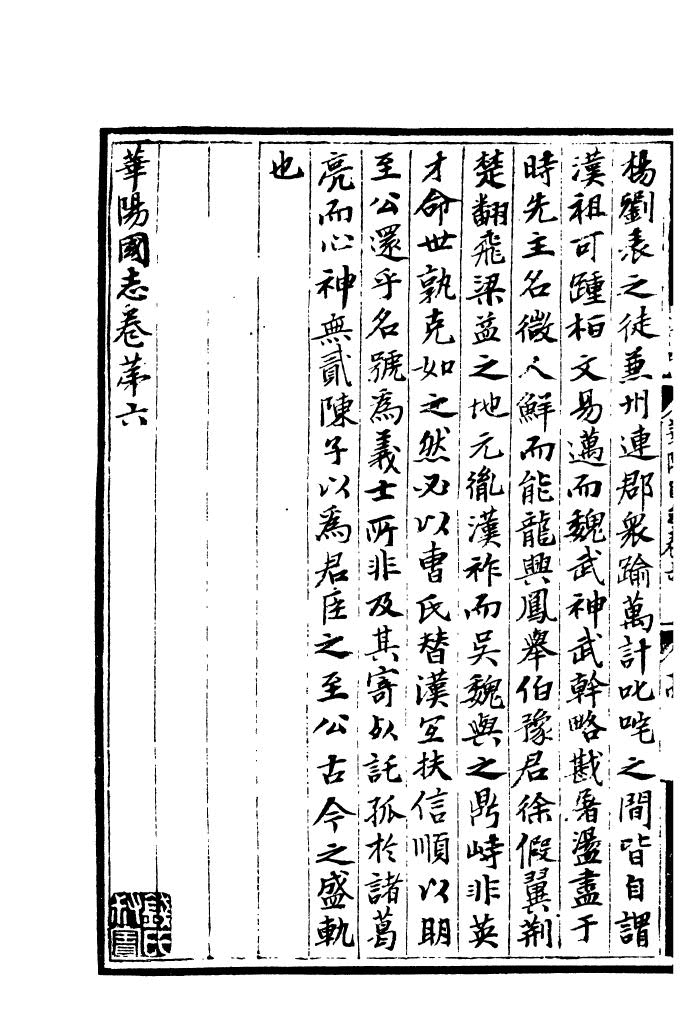 楊劉表之徒兼州連郡衆踰萬計叱咤之間皆自謂
漢祖可踵桓文易邁而魏武神武幹略戡屠盪盡于
時先主名微人鮮而能龍興鳳舉伯豫君徐假翼荆
楚翻飛梁益之地元胤漢祚而吳魏與之鼎峙非英
才命世孰克如之然必以曹氏替漢宜扶信順以明
至公還乎名號爲義士所非及其寄死託孤於諸葛
亮而心神無貳陳子以爲君臣之至公古今之盛軌
也
華陽國志卷第六